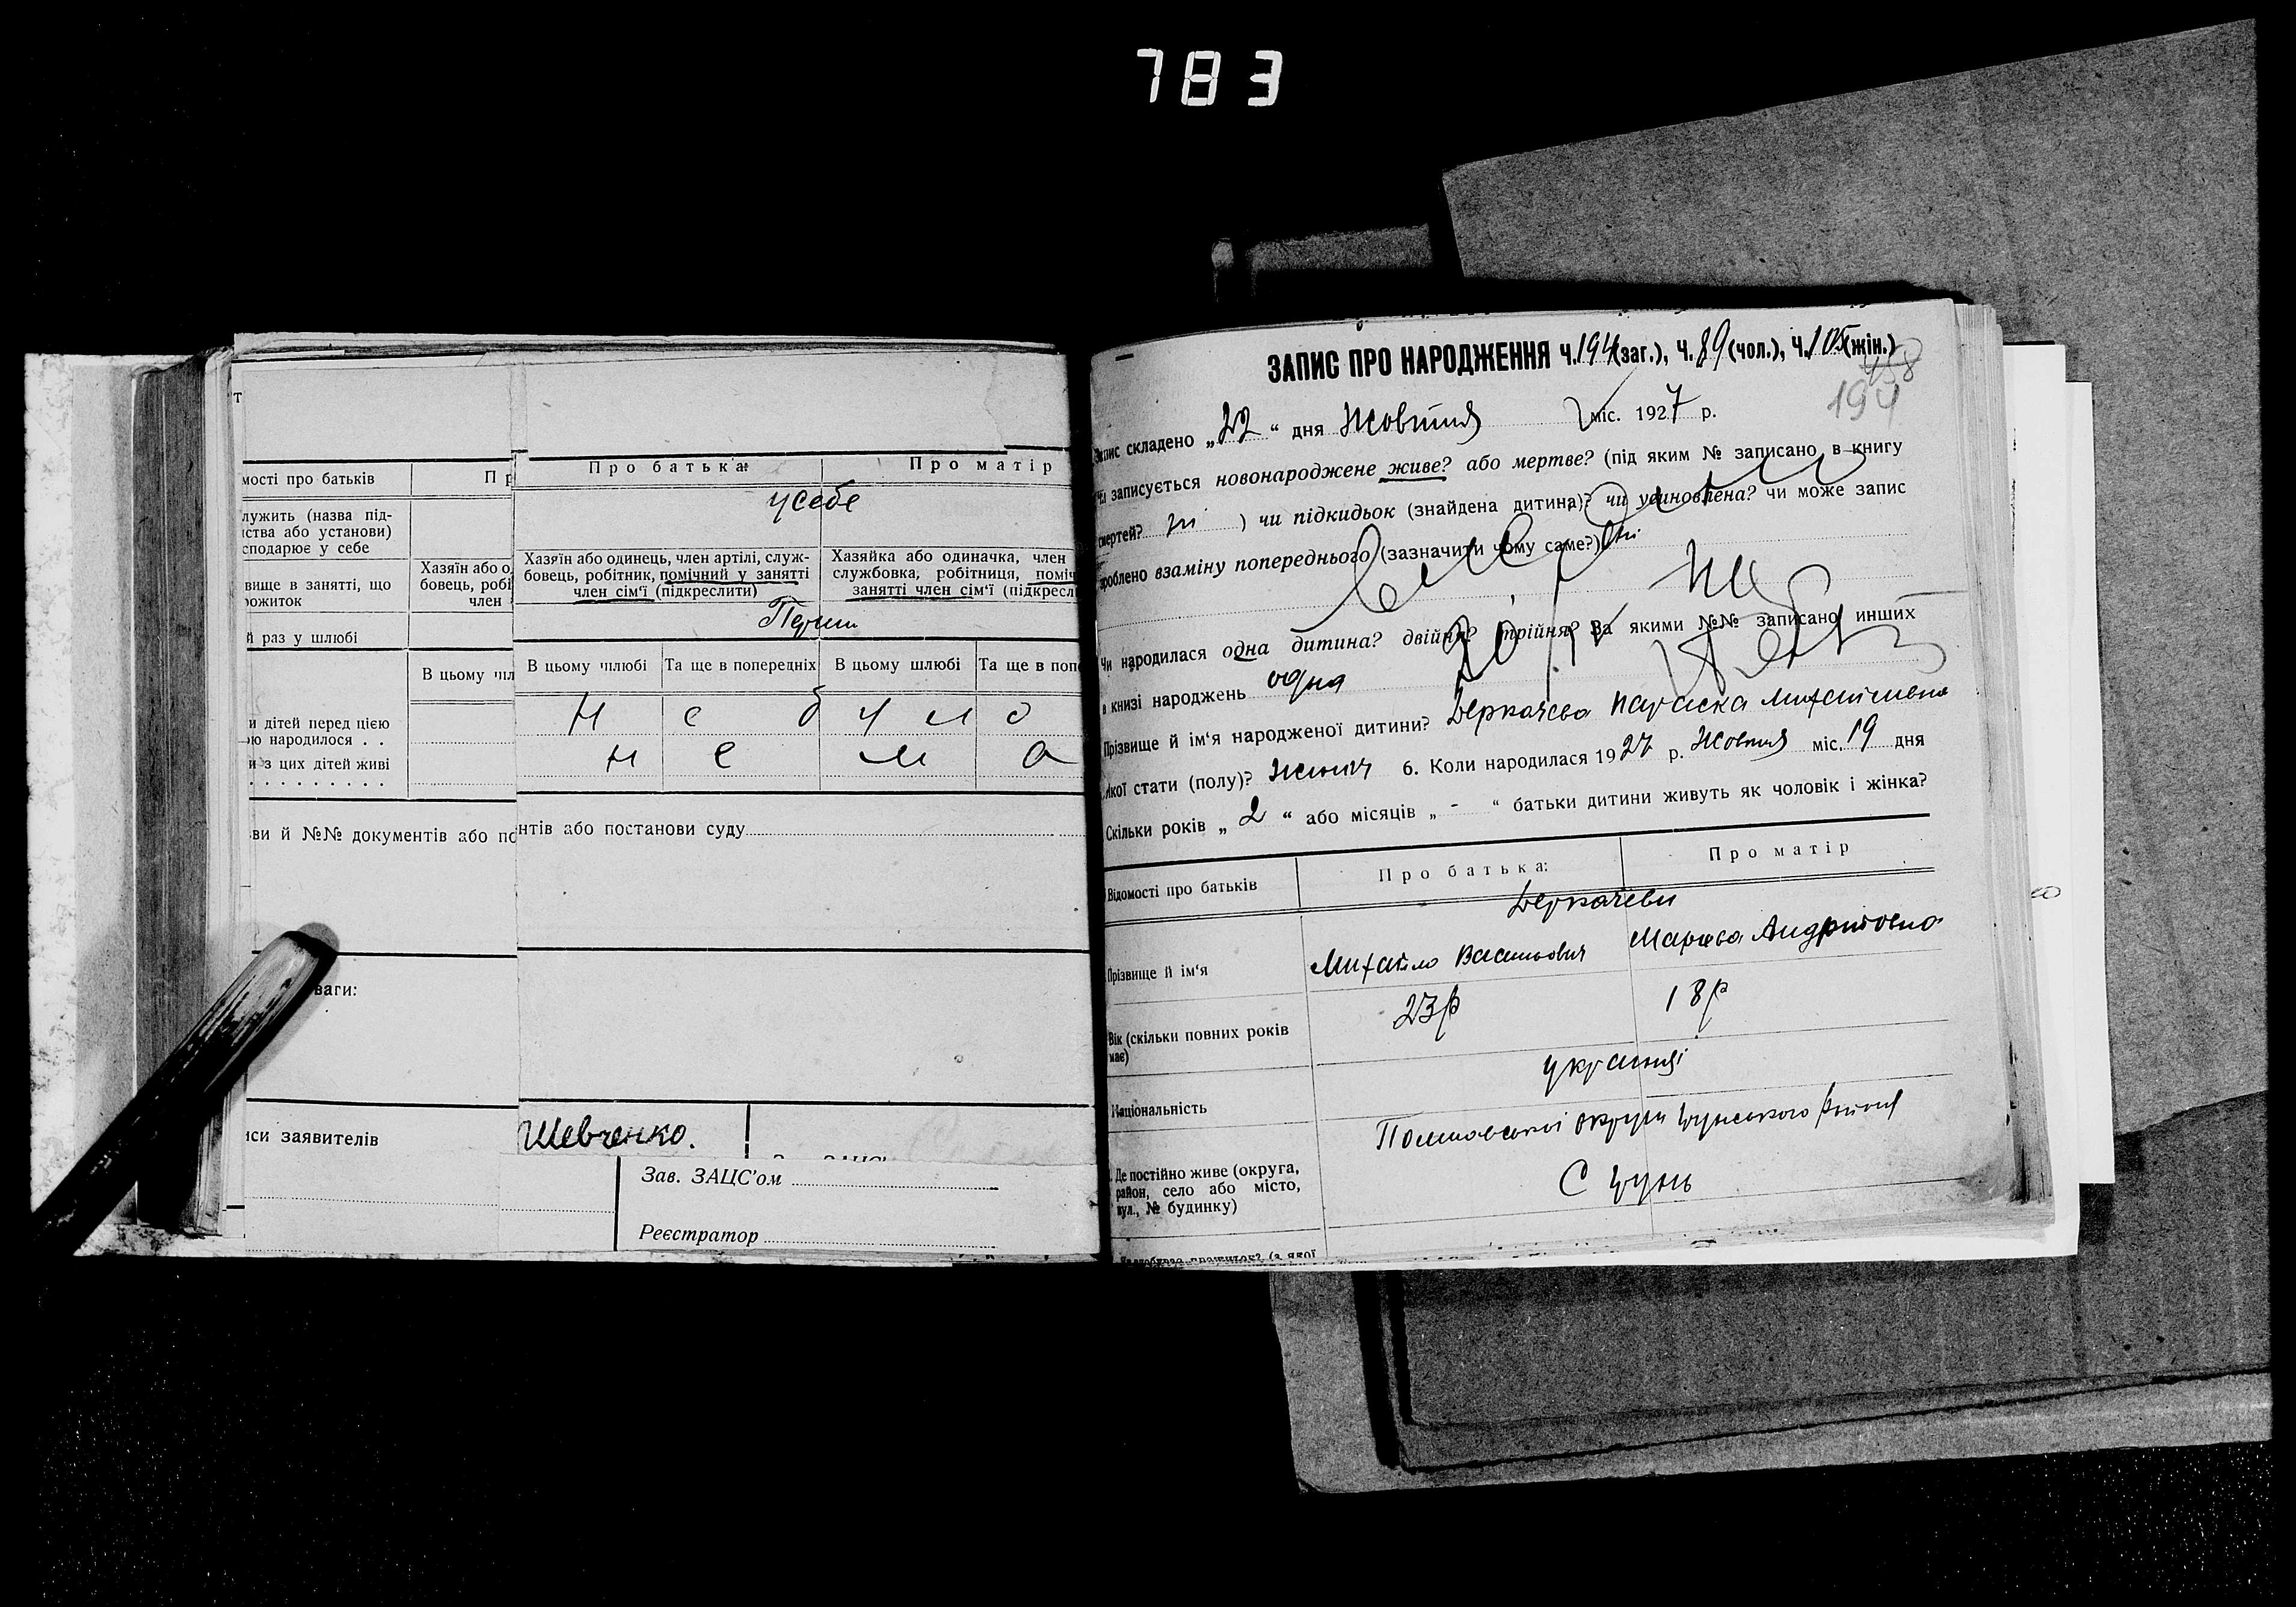 783
т
мості про батьків
П р
лужить (назва під-
ства або установи)
сподарює у себе
Хазяїн або о
бовець, робі
член
вище в занятті, що
рожиток
й раз у шлюбі
В цьому шл
и дітей перед цією
ю народилося . .
и з цих дітей живі
. . . . . . . . . .
ви й №№ документів або по
ваги:
си заявителів
Про батька: Про матір
усебе
Хазяїн або одинець, член артілі, служ-
бовець, робітник, помічний у занятті
член сім'ї (підкреслити)
Хазяйка або одиначка, член
службовка, робітниця, поміч
занятті член сім'ї (підкресли
Перши
В цьому шлюбі Та ще в попередніх В цьому шлюбі Та ще в попе
Н е б у л о
н е м а
нтів або постанови суду
Шевченко.
Зав. ЗАЦС'ом
Реєстратор
ЗАПИС ПРО НАРОДЖЕННЯ Ч. 194 (заг.), Ч. 89 (чол.), Ч. 105 (жін.)
458
194
Запис складено „22“ дня Жовтня міс. 1927 р.
Чи записується новонароджене живе? або мертве? (під яким № записано в книгу
смертей? ні ) чи підкидьок (знайдена дитина)? чи усиновлена? чи може запис
зроблено взаміну попереднього (зазначити чому саме?) Ні
Чи народилася одна дитина? двійня? трійня? За якими №№ записано инших
в книзі народжень одна
Прізвище й ім'я народженої дитини? Деркачева Параска Михайлівна
Якої стати (полу)? Жіноч 6. Коли народилася 1927 р. Жовтня міс. 19 дня
Скільки років „2“ або місяців „-“ батьки дитини живуть як чоловік і жінка?
Відомості про батьків Про батька: Про матір
Деркачеви
Прізвище й ім'я Михайло Васильович Андріївна
Вік (скільки повних років
має)
23р 18р
Національність
українці
Де постійно живе (округа,
район, село або місто,
вул., № будинку)
округи району
С